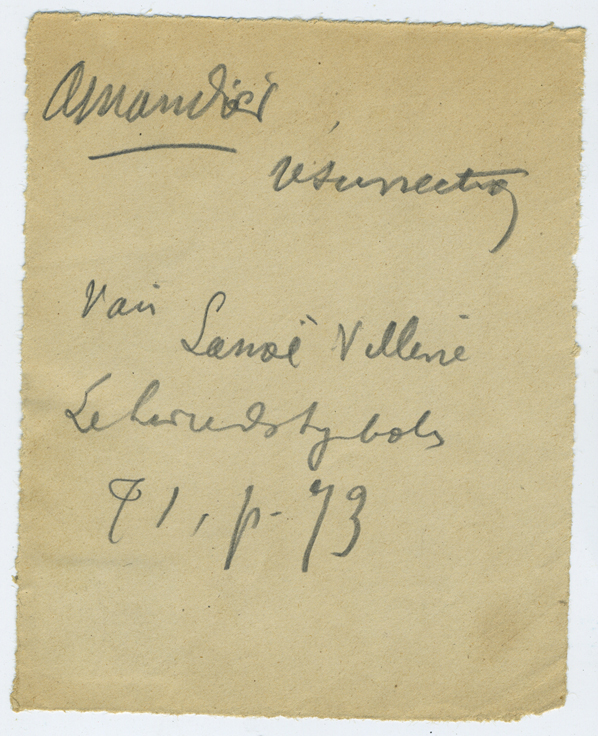 Amandier
résurrection
Voir
Lanoë Villène
Le livre des symboles
T 1, p. 73